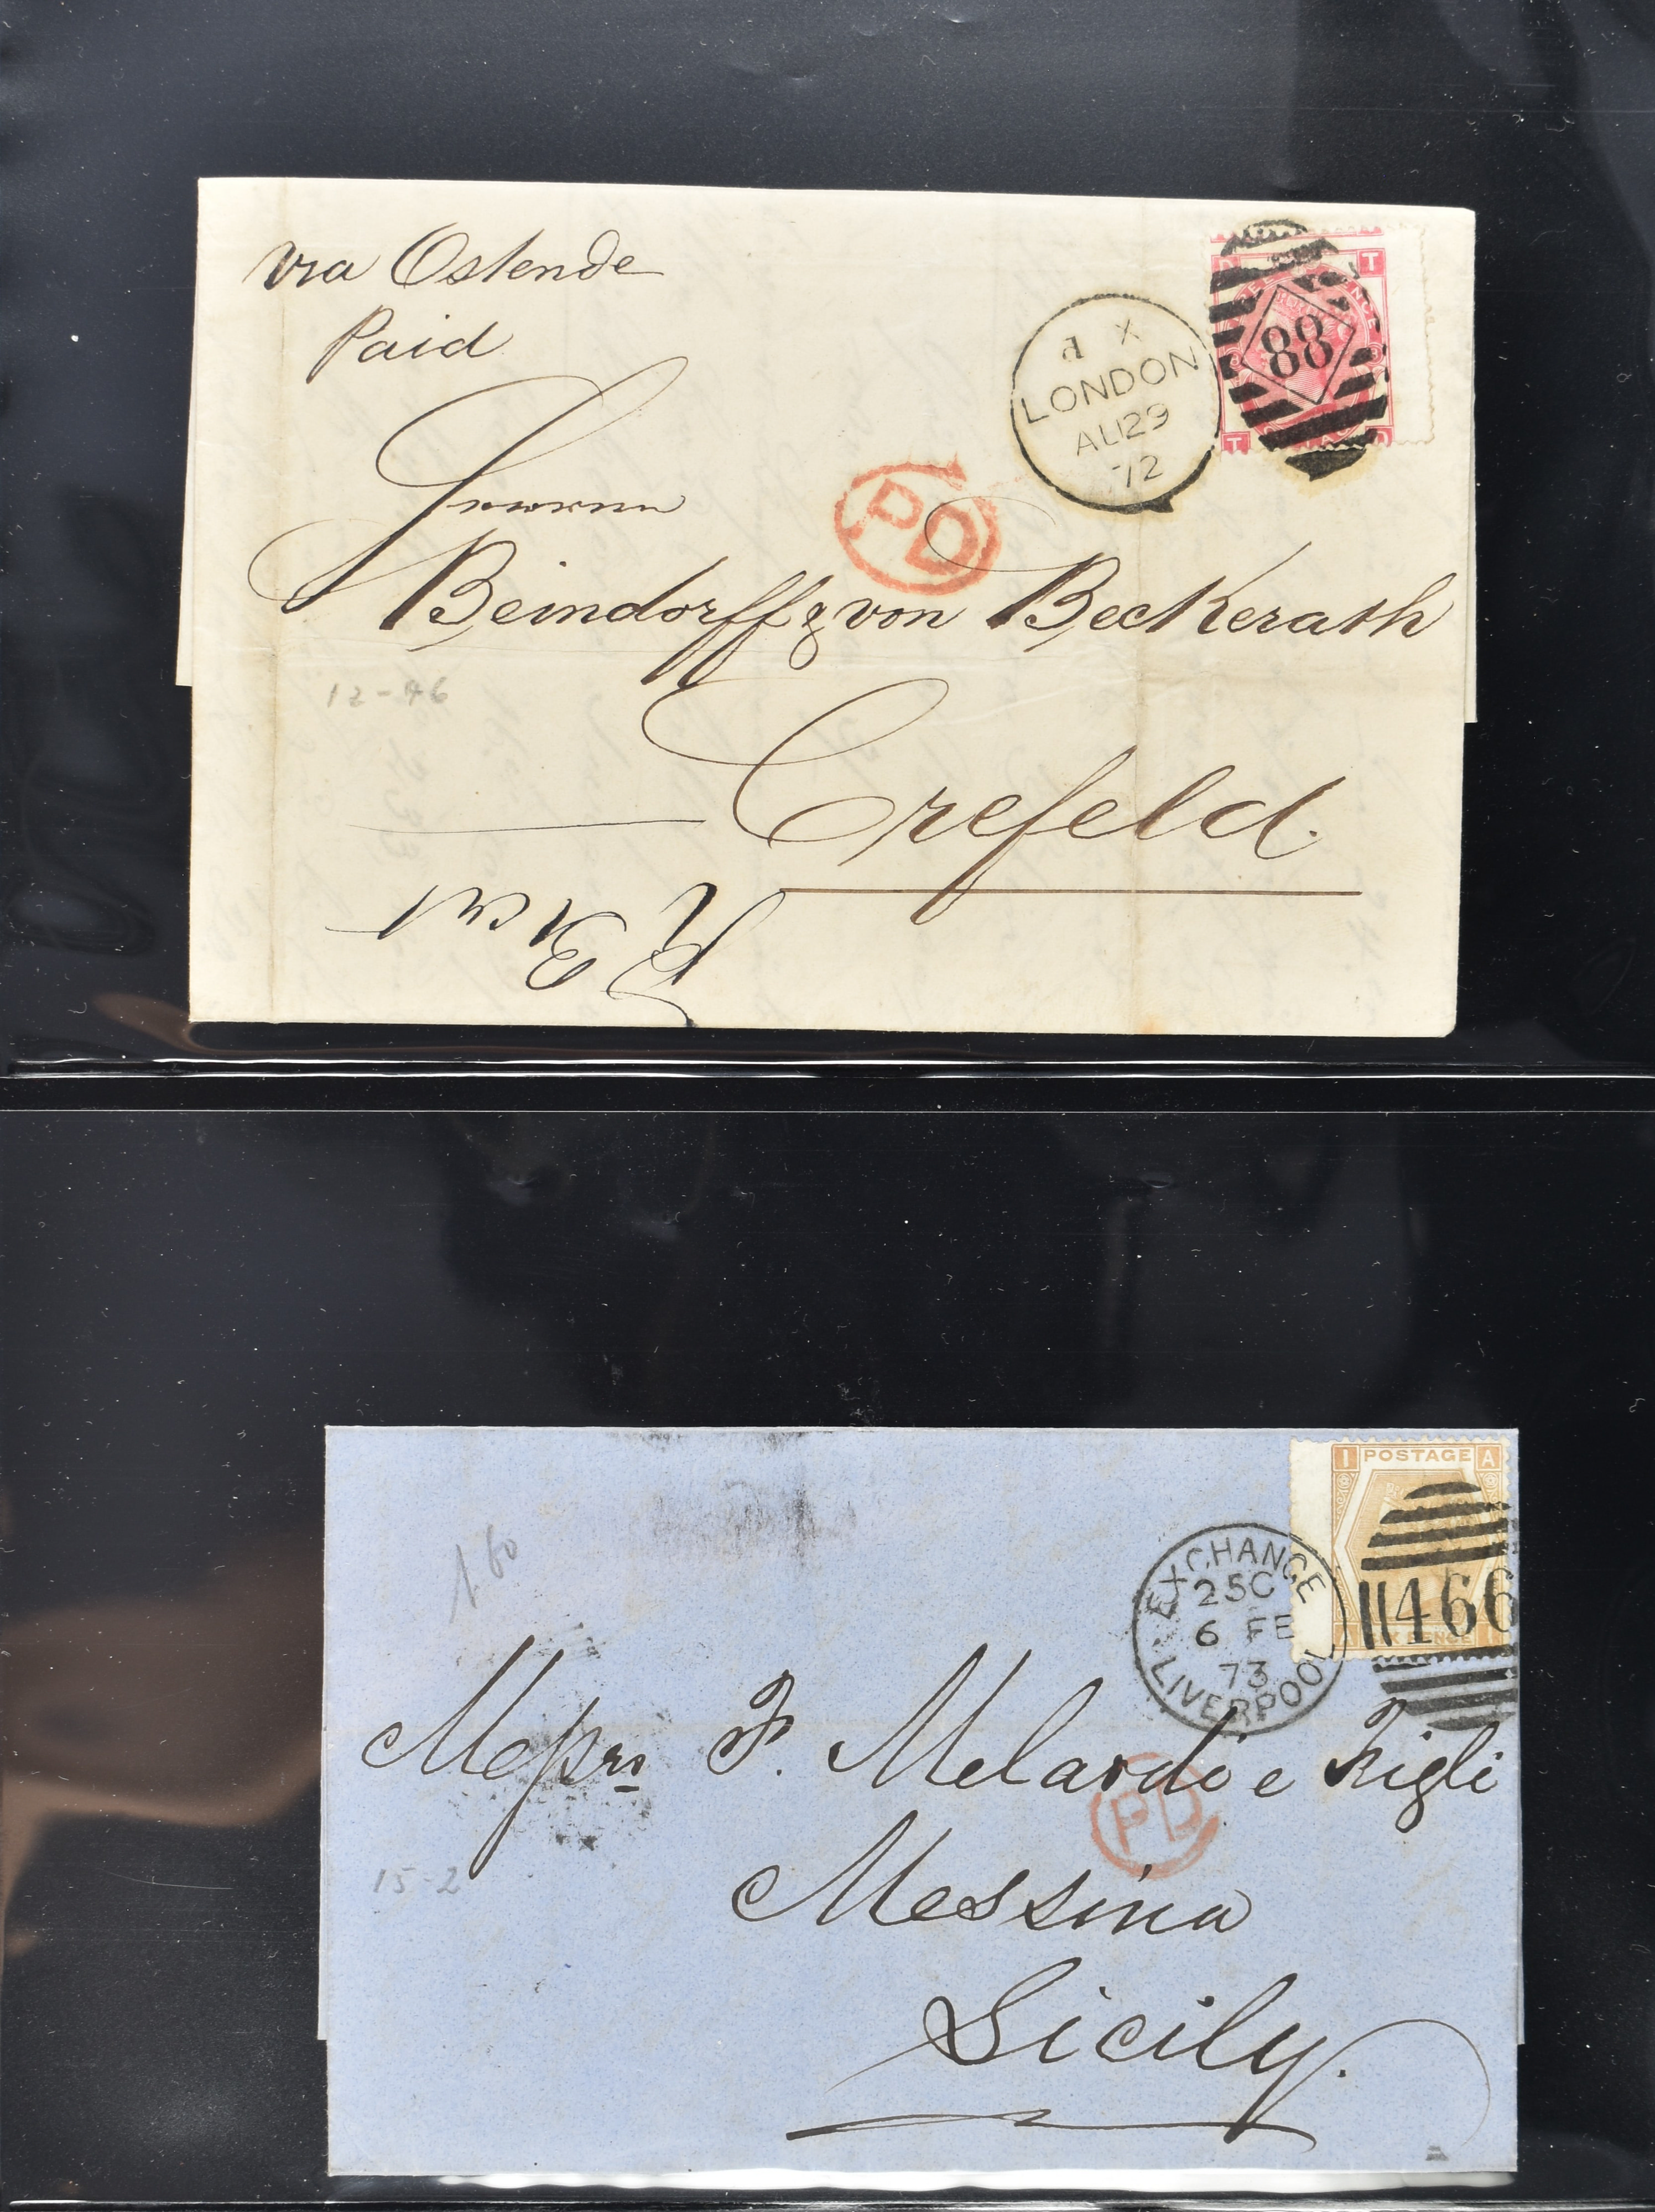 via Ostende
Paid
d X
LONDON
AU 29
72
88
D T
T D
PD
Herren
Beindorff & von Beckerath
12-46
Crefeld.
I POSTAGE A
466
EXCHANGE
25C
6 FE
73
LIVERPOOL
1.60
Messrs F. Melardi e Figli
PD
Messina
15-2
Sicily.